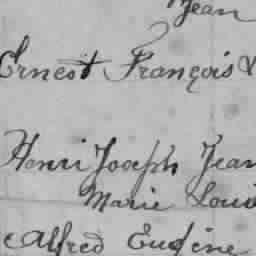 Jean
Ernest François
Henri Joseph Jean
Marie Louis
Alfred Eugène